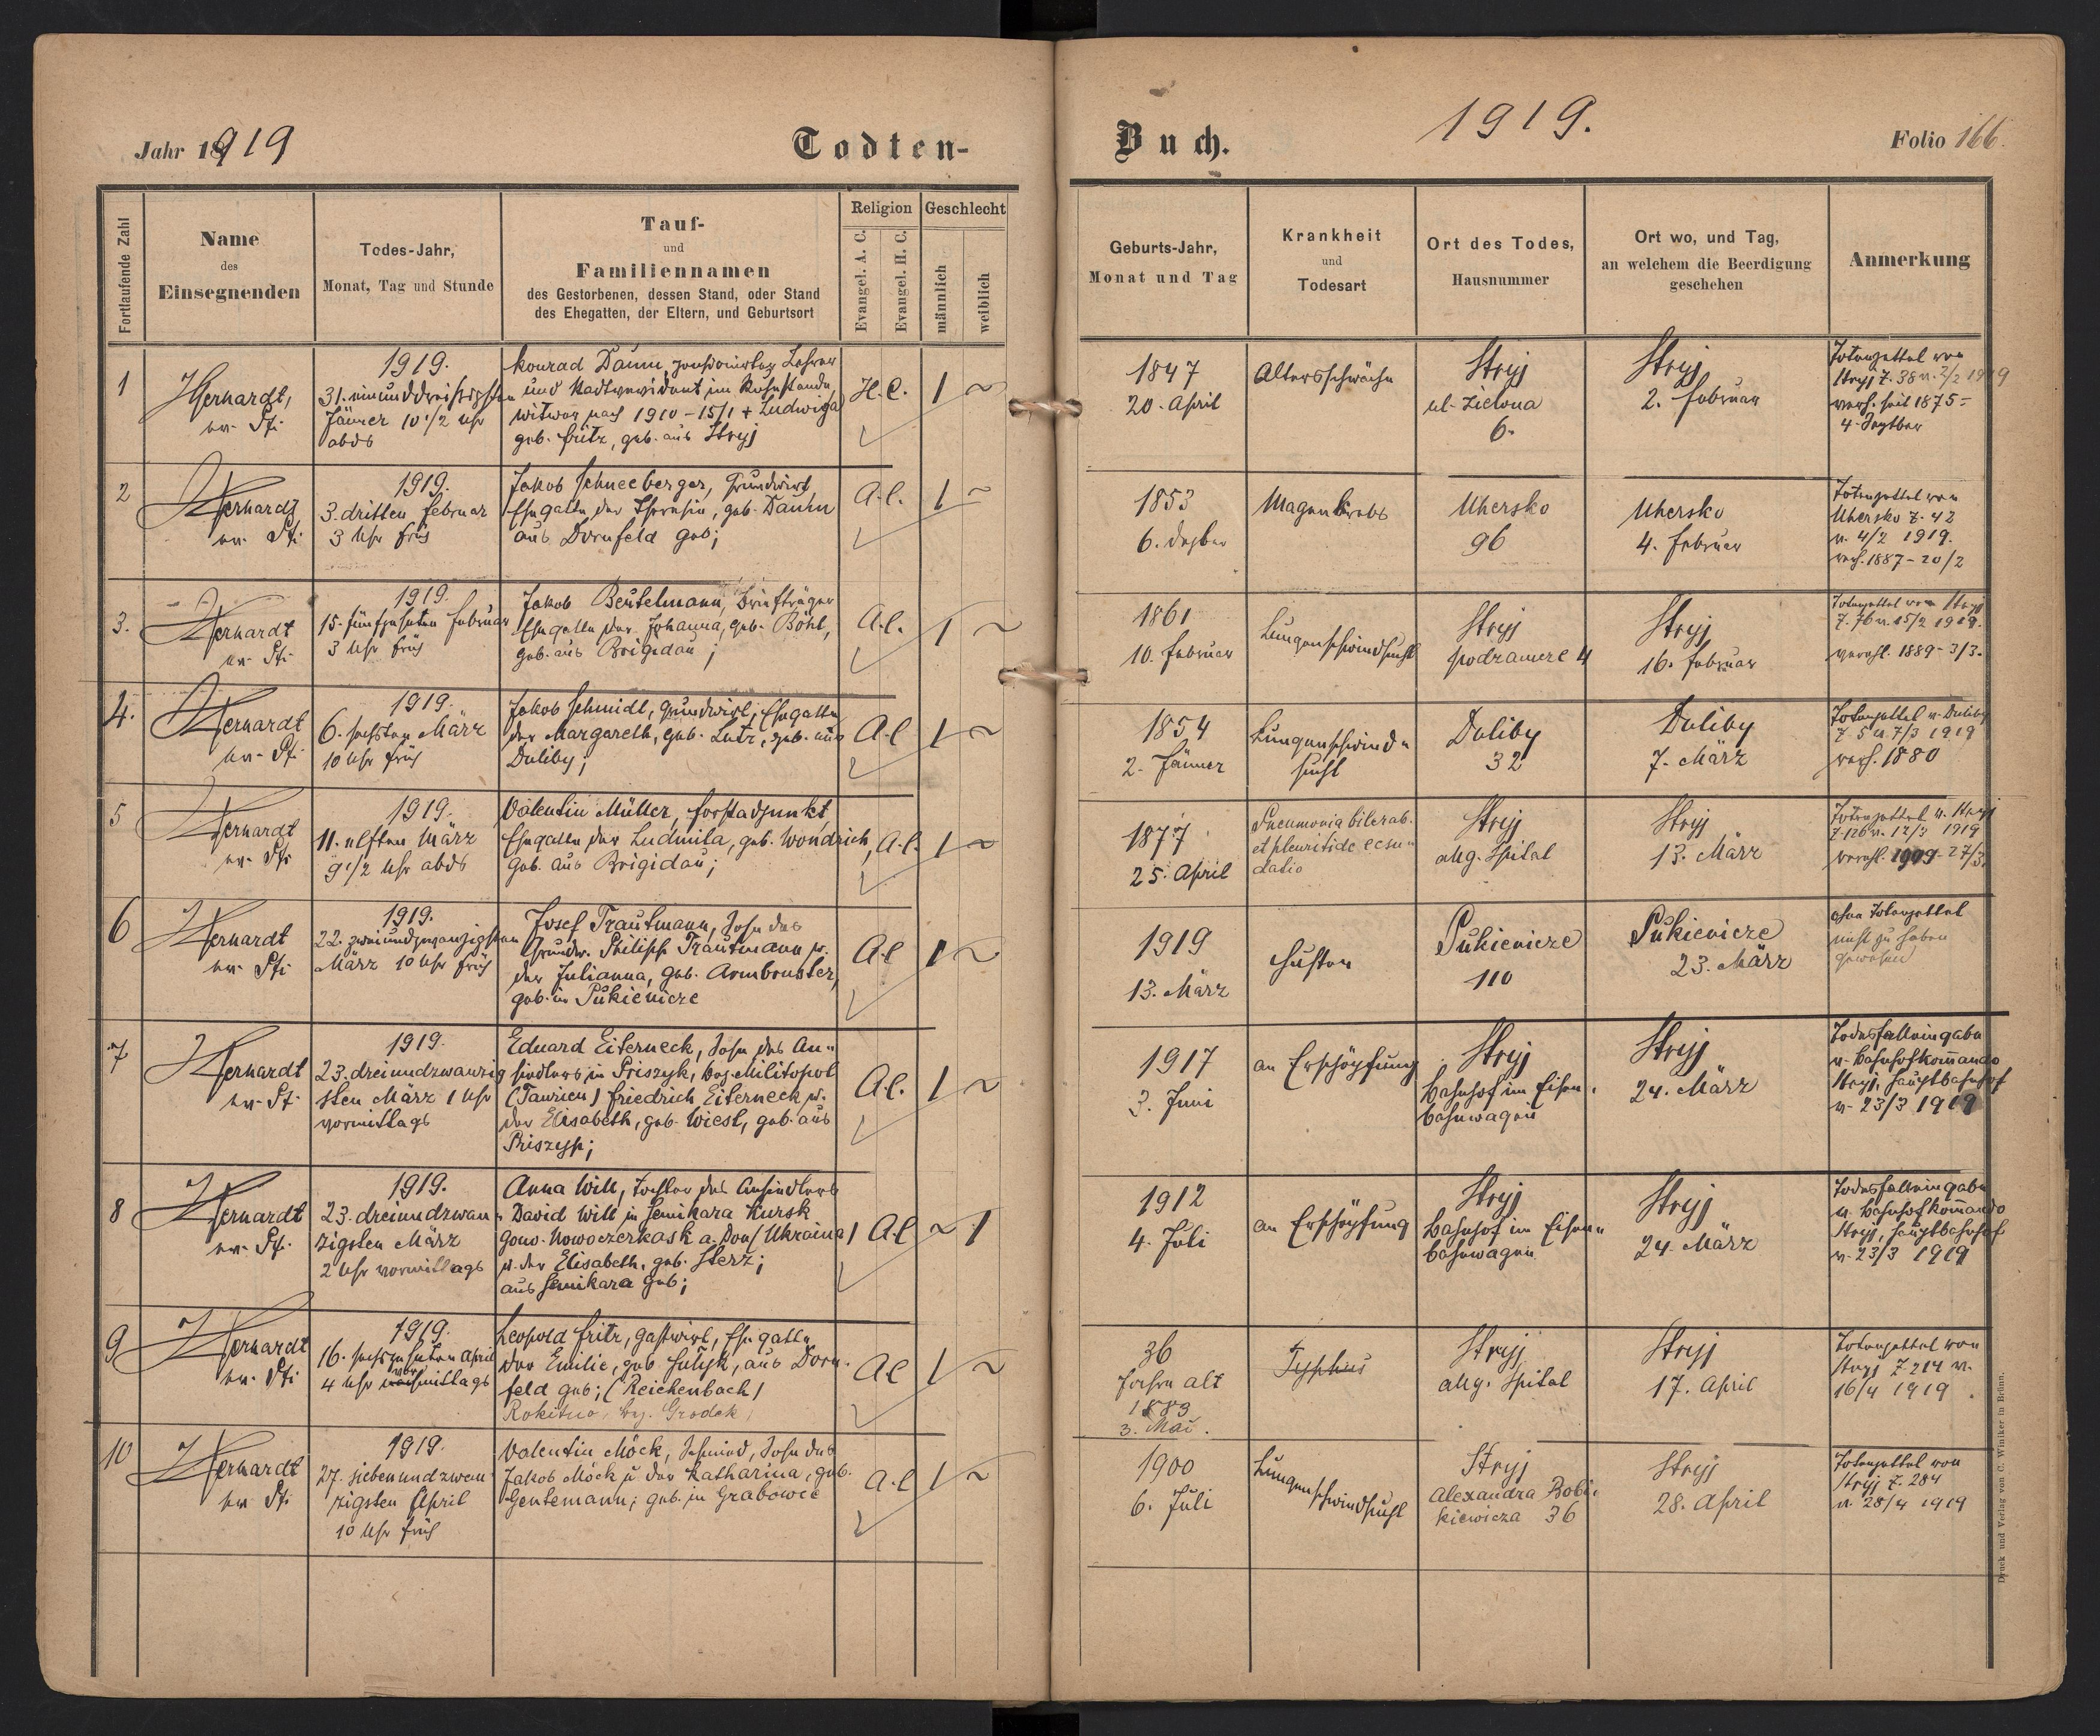 Jahr 1919
Todten-
Fortlaufende Zahl
Name
des
Einsegnenden
Todes-Jahr,
Monat, Tag und Stunde
Tauf-
und
Familiennamen
des Gestorbenen, dessen Stand, oder Stand
des Ehegatten, der Eltern, und Geburtsort
Religion
Evangel. A. C.
Evangel. H. C.
Geschlecht
männlich
weiblich
1
Gerhardt,
ev. Pfr.
1919.
31. einunddreißigsten
Jänner 10 1/2 Uhr
abds
Konrad Daum, pensionierter Lehrer
und Stadtrevident im Ruhestande,
Witwer nach 1910 - 15/1 + Ludwiga
geb. Fritz, geb. aus Stryj
H.C. 1 ~
2
Gerhardt
ev. Pfr.
1919.
3. dritten Februar
3 Uhr früh
Jakob Schneeberger, Grundwirt
Ehegatte der Theresia, geb. Daum
aus Dornfeld geb;
A.C. 1 ~
3.
Gerhardt
ev. Pfr.
1919.
15. fünfzehnten Februar
3 Uhr früh
Jakob Beutelmann, Briefträger
Ehegatte der Johanna, geb. Böhl,
geb. aus Brigidau;
A.C. 1 ~
4.
Gerhardt
ev. Pfr.
1919.
6. sechsten März
10 Uhr früh
Jakob Schmidt, Grundwirt, Ehegatte
der Margareth, geb. Lutz, geb. aus
Duliby;
A.C 1 ~
5
Gerhardt
ev. Pfr
1919.
11. elften März
9 1/2 Uhr abds
Valentin Müller, Forstadjunkt,
Ehegatte der Ludmila, geb. Wondrich,
geb. aus Brigidau;
A.C. 1 ~
6
Gerhardt
ev. Pfr
1919.
22. zweiundzwanzigsten
März 10 Uhr früh
Josef Trautmann, Sohn des
Grundw. Philipp Trautmann u.
der Julianna, geb. Armbruster,
geb. in Pukienicze
A.C 1 ~
7
Gerhardt
ev. Pf.
1919.
23. dreiundzwanzig
sten März 1 Uhr
vormittags
Eduard Eiterneck, Sohn des An-
siedlers in Priszyk, bez. Militopol
(Taurien) Friedrich Eiterneck u.
der Elisabeth, geb. Wiest, geb. aus
Priszyp;
A.C. 1 ~
8
Gerhardt
ev. Pfr.
1919.
23. dreiundzwan-
zigsten März
2 Uhr vormittags
Anna Will, Tochter des Ansiedlers
David Will in Semikara Kursk
gouv. Nowoczerkask a. Don (Ukraina)
u. der Elisabeth, geb. Sterz;
aus Semikara geb;
A.C ~ 1
9
Gerhardt
ev. Pfr
1919.
16. sechzehnten April
vor
4 Uhr nachmittags
Leopold Fritz, Gastwirt, Ehegatte
der Emilie, geb. Hutyk, aus Dorn-
feld geb; (Reichenbach)
Rokitno, bez. Grodek
AC 1 ~
10
Gerhardt
ev. Pfr
1919.
27. siebenundzwan
zigsten April
10 Uhr früh
Valentin Möck, Schmied, Sohn des
Jakob Möck u der Katharina, geb.
Gentemann; geb. in Grabowce
A.C 1 ~
Buch.
1919.
Folio 166.
Geburts-Jahr,
Monat und Tag
Krankheit
und
Todesart
Ort des Todes,
Hausnummer
Ort wo, und Tag,
an welchem die Beerdigung
geschehen
Anmerkung
1847
20. April
Altersschwäche
Stryj
ul. Zielona
6.
Stryj
2. Februar
Totenzettel von
Stryj Z. 38 v. 2/2 1919
verh. seit 1875 -
4. Septber
1853
6. Dezber
Magenkrebs
Uhersko
96
Uhersko
4. Februar
Totenzettel von
Uhersko Z. 42
v. 4/2 1919.
verh. 1887 - 20/2
1861
10. Februar
Lungenschwindsucht
Stryj
podzamcze 4
Stryj
16. Februar
Totenzettel von Stryj
Z. 76 v. 15/2 1919.
verehl. 1889 - 3/3.
1854
2. Jänner
Lungenschwind-
sucht
Duliby
32
Duliby
7. März
Totenzettel v. Duliby
Z. 5 v. 7/3 1919
verh. 1880
1877
25. April
Pneumonia bilerab.
et pleuritide exsu-
datio
Stryj
allg. Spital
Stryj
13. März
Totenzettel v. Stryj
Z. 126 v. 12/3 1919
verehl. 1909 - 27/3.
1919
13. März
Husten
Pukienicze
110
Pukienicze
23. März
ohne Totenzettel
nicht zu haben
gewesen
1917
3. Juni
an Erschöpfung
Stryj
Bahnhof im Eisen-
bahnwagen
Stryj
24. März
Todesfalleingabe
v. Bahnhofkommando
Stryj, Hauptbahnhof
v. 23/3 1919
1912
4. Juli
an Erschöpfung
Stryj
Bahnhof im Eisen-
bahnwagen
Stryj
24. März
Todesfalleingabe
v. Bahnhofkomando
Stryj, Hauptbahnhof
v. 23/3 1919
36
Jahre alt
1883
3. Mai.
Typhus
Stryj
allg. Spital
Stryj
17. April
Totenzettel von
Stryj Z. 214 v.
16/4 1919.
1900
6. Juli
Lungenschwindsucht
Stryj
Alexandra Bobi-
kiewicza 36
Stryj
28. April
Totenzettel von
Stryj Z. 284
v. 28/4 1919
Druck und Verlag von C. Winiker in Brünn.